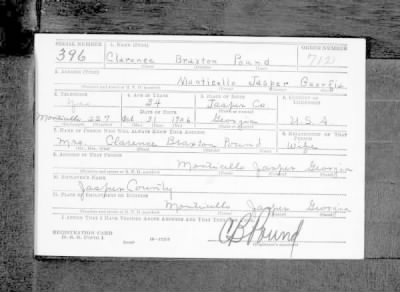 SERIAL NUMBER 1. NAME (Print) ORDER NUMBER
396 Clarence Braxton Pound 7121
(First) (Middle) (Last)
2. ADDRESS (Print)
Monticello Jasper Georgia
3. TELEPHONE 4. AGE IN YEARS 5. PLACE OF BIRTH 6. COUNTRY OF CITIZENSHIP
Yes 34 Jasper Co.
DATE OF BIRTH
Monticello 227 Oct 31 1906 Georgia U.S.A
7. NAME OF PERSON WHO WILL ALWAYS KNOW YOUR ADDRESS 8. RELATIONSHIP OF THAT PERSON
Mrs. Clarence Braxton Pound Wife
9. ADDRESS OF THAT PERSON
Monticello Jasper Georgia
10. EMPLOYER'S NAME
Jasper County
11. PLACE OF EMPLOYMENT OR BUSINESS
Monticello Jasper Georgia
I AFFIRM THAT I HAVE VERIFIED ABOVE ANSWERS AND THAT THEY ARE TRUE.
REGISTRATION CARD
D. S. S. FORM 1
C B Pound